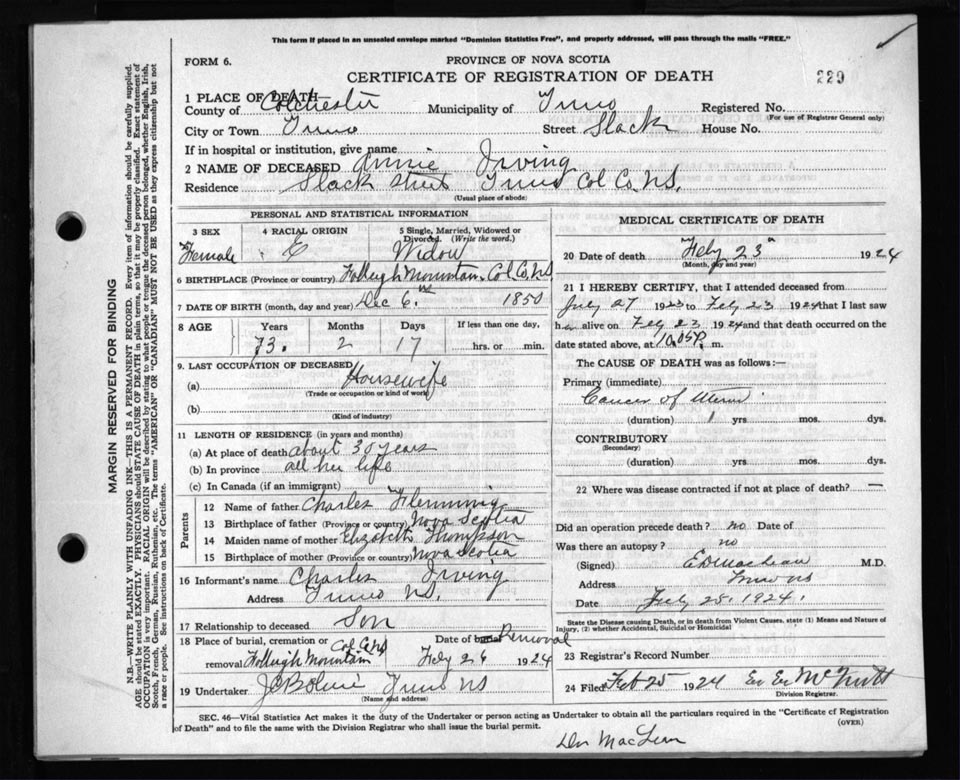 This form if placed in an unsealed envelope marked "Dominion Statistics Free", and properly addressed, will pass through the mails "FREE."
FORM 6.
PROVINCE OF NOVA SCOTIA
CERTIFICATE OF REGISTRATION OF DEATH
229
1 PLACE OF DEATH
County of Colchester Municipality of Truro Registered No.
(For use of Registrar General only)
City or Town Truro Street Slack House No.
If in hospital or institution, give name
2 NAME OF DECEASED Annie Irving
Residence Slack Street Truro Col Co. N.S.
(Usual place of abode)
PERSONAL AND STATISTICAL INFORMATION
3 SEX 4 RACIAL ORIGIN 5 Single, Married, Widowed or Divorced. (Write the word.)
Female E Widow
6 BIRTHPLACE (Province or country) Folleigh Mountain. Col. Co. NS
7 DATE OF BIRTH (month, day and year) Dec 6. 1850
8 AGE Years Months Days If less than one day,
73. 2 17 hrs. or min.
9. LAST OCCUPATION OF DECEASED
(a) Housewife
(Trade or occupation or kind of work)
(b)
(Kind of industry)
11 LENGTH OF RESIDENCE (in years and months)
(a) At place of death about 30 years
(b) In province all her life
(c) In Canada (if an immigrant)
Parents
12 Name of father Charles Flemming
13 Birthplace of father (Province or country) Nova Scotia
14 Maiden name of mother Elizabeth Thompson
15 Birthplace of mother (Province or country) Nova Scotia
16 Informant's name Charles Irving
Address Truro NS.
17 Relationship to deceased Son
18 Place of burial, cremation or removal Folleigh Mountain Col. Co. NS Date of burial Removal Feby 26 1924
19 Undertaker Truro NS
(Name and address)
MEDICAL CERTIFICATE OF DEATH
20 Date of death Feby 23 1924
(Month, day and year)
21 I HEREBY CERTIFY, that I attended deceased from
July 27 1923 to Feby 23 1924 that I last saw
her alive on Feby 23 1924 and that death occurred on
date stated above, at 10.05 P. m.
The CAUSE OF DEATH was as follows:—
Primary (immediate)
Cancer of Uterus
(duration) 1 yrs mos. dys.
CONTRIBUTORY
(Secondary)
(duration) yrs mos. dys.
22 Where was disease contracted if not at place of death? —
Did an operation precede death? no Date of
Was there an autopsy? no
(Signed) M.D.
Address Truro NS
Date Feby 25. 1924.
State the Disease causing Death, or in death from Violent Causes, state (1) Means and Nature of Injury, (2) whether Accidental, Suicidal or Homicidal
23 Registrar's Record Number
24 Filed Feb 25 1924 McNutt
Division Registrar.
SEC. 46—Vital Statistics Act makes it the duty of the Undertaker or person acting as Undertaker to obtain all the particulars required in the "Certificate of Registration
of Death" and to file the same with the Division Registrar who shall issue the burial permit.
(OVER)
Dr MacLean
MARGIN RESERVED FOR BINDING
N.B.—WRITE PLAINLY WITH UNFADING INK—THIS IS A PERMANENT RECORD. Every item of information should be carefully supplied.
AGE should be stated EXACTLY. PHYSICIANS should STATE CAUSE OF DEATH in plain terms, so that it may be properly classified. Exact statement of
OCCUPATION is very important. RACIAL ORIGIN will be described by stating to what people or tongue the deceased person belonged, whether English, Irish,
Scotch, French, German, Russian, Ruthenian, etc. The terms "AMERICAN" OR "CANADIAN" MUST NOT BE USED as they express citizenship but not
a race or people. See instructions on back of Certificate.